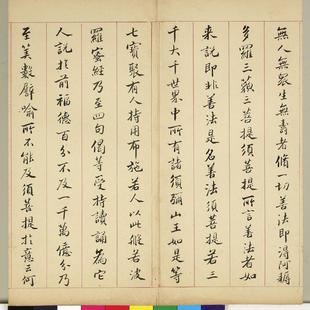 無人無眾生無壽者脩一切善法即得阿耨
多羅三藐三菩提須菩提所言善法者如
來說即非善法是名善法須菩提若三
千大千世界中所有諸須彌山王如是等
七寶聚有人持用布施若人以此般若波
羅蜜經乃至四句偈等受持讀誦為它
人說於前福德百分不及一千萬億分乃
至筭數譬喻所不能及須菩提於意云何